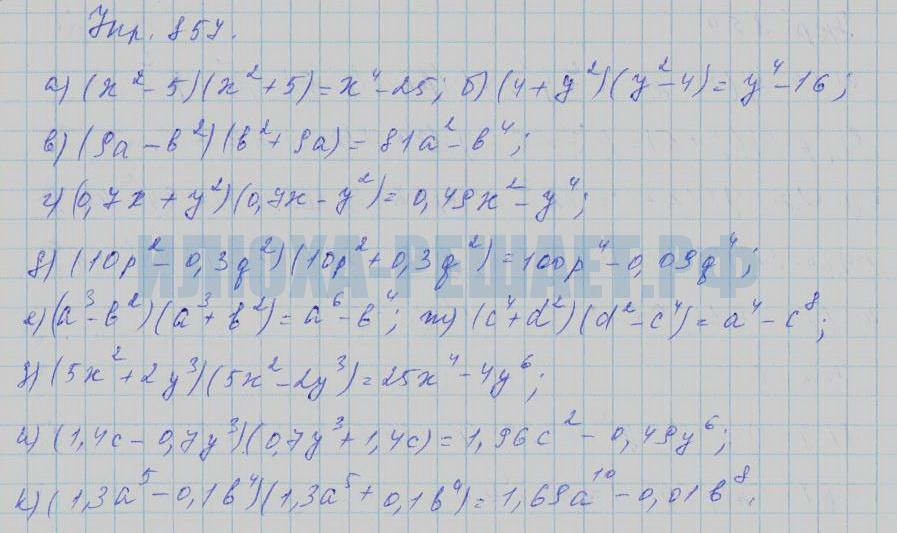 Упр. 857.
а) (x² - 5)(x² + 5) = x⁴ - 25; б) (4 + y²)(y² - 4) = y⁴ - 16;
в) (9a - b²)(b² + 9a) = 81a² - b⁴;
г) (0,7x + y²)(0,7x - y²) = 0,49x² - y⁴;
д) (10p² - 0,3q²)(10p² + 0,3q²) = 100p⁴ - 0,09q⁴;
ИЛЮХА-РЕШАЕТ.РФ
е) (a³ - b²)(a³ + b²) = a⁶ - b⁴; ж) (c⁴ + d²)(d² - c⁴) = a⁴ - c⁸;
з) (5x² + 2y³)(5x² - 2y³) = 25x⁴ - 4y⁶;
и) (1,4c - 0,7y³)(0,7y³ + 1,4c) = 1,96c² - 0,49y⁶;
к) (1,3a⁵ - 0,1b⁴)(1,3a⁵ + 0,1b⁴) = 1,69a¹⁰ - 0,01b⁸.